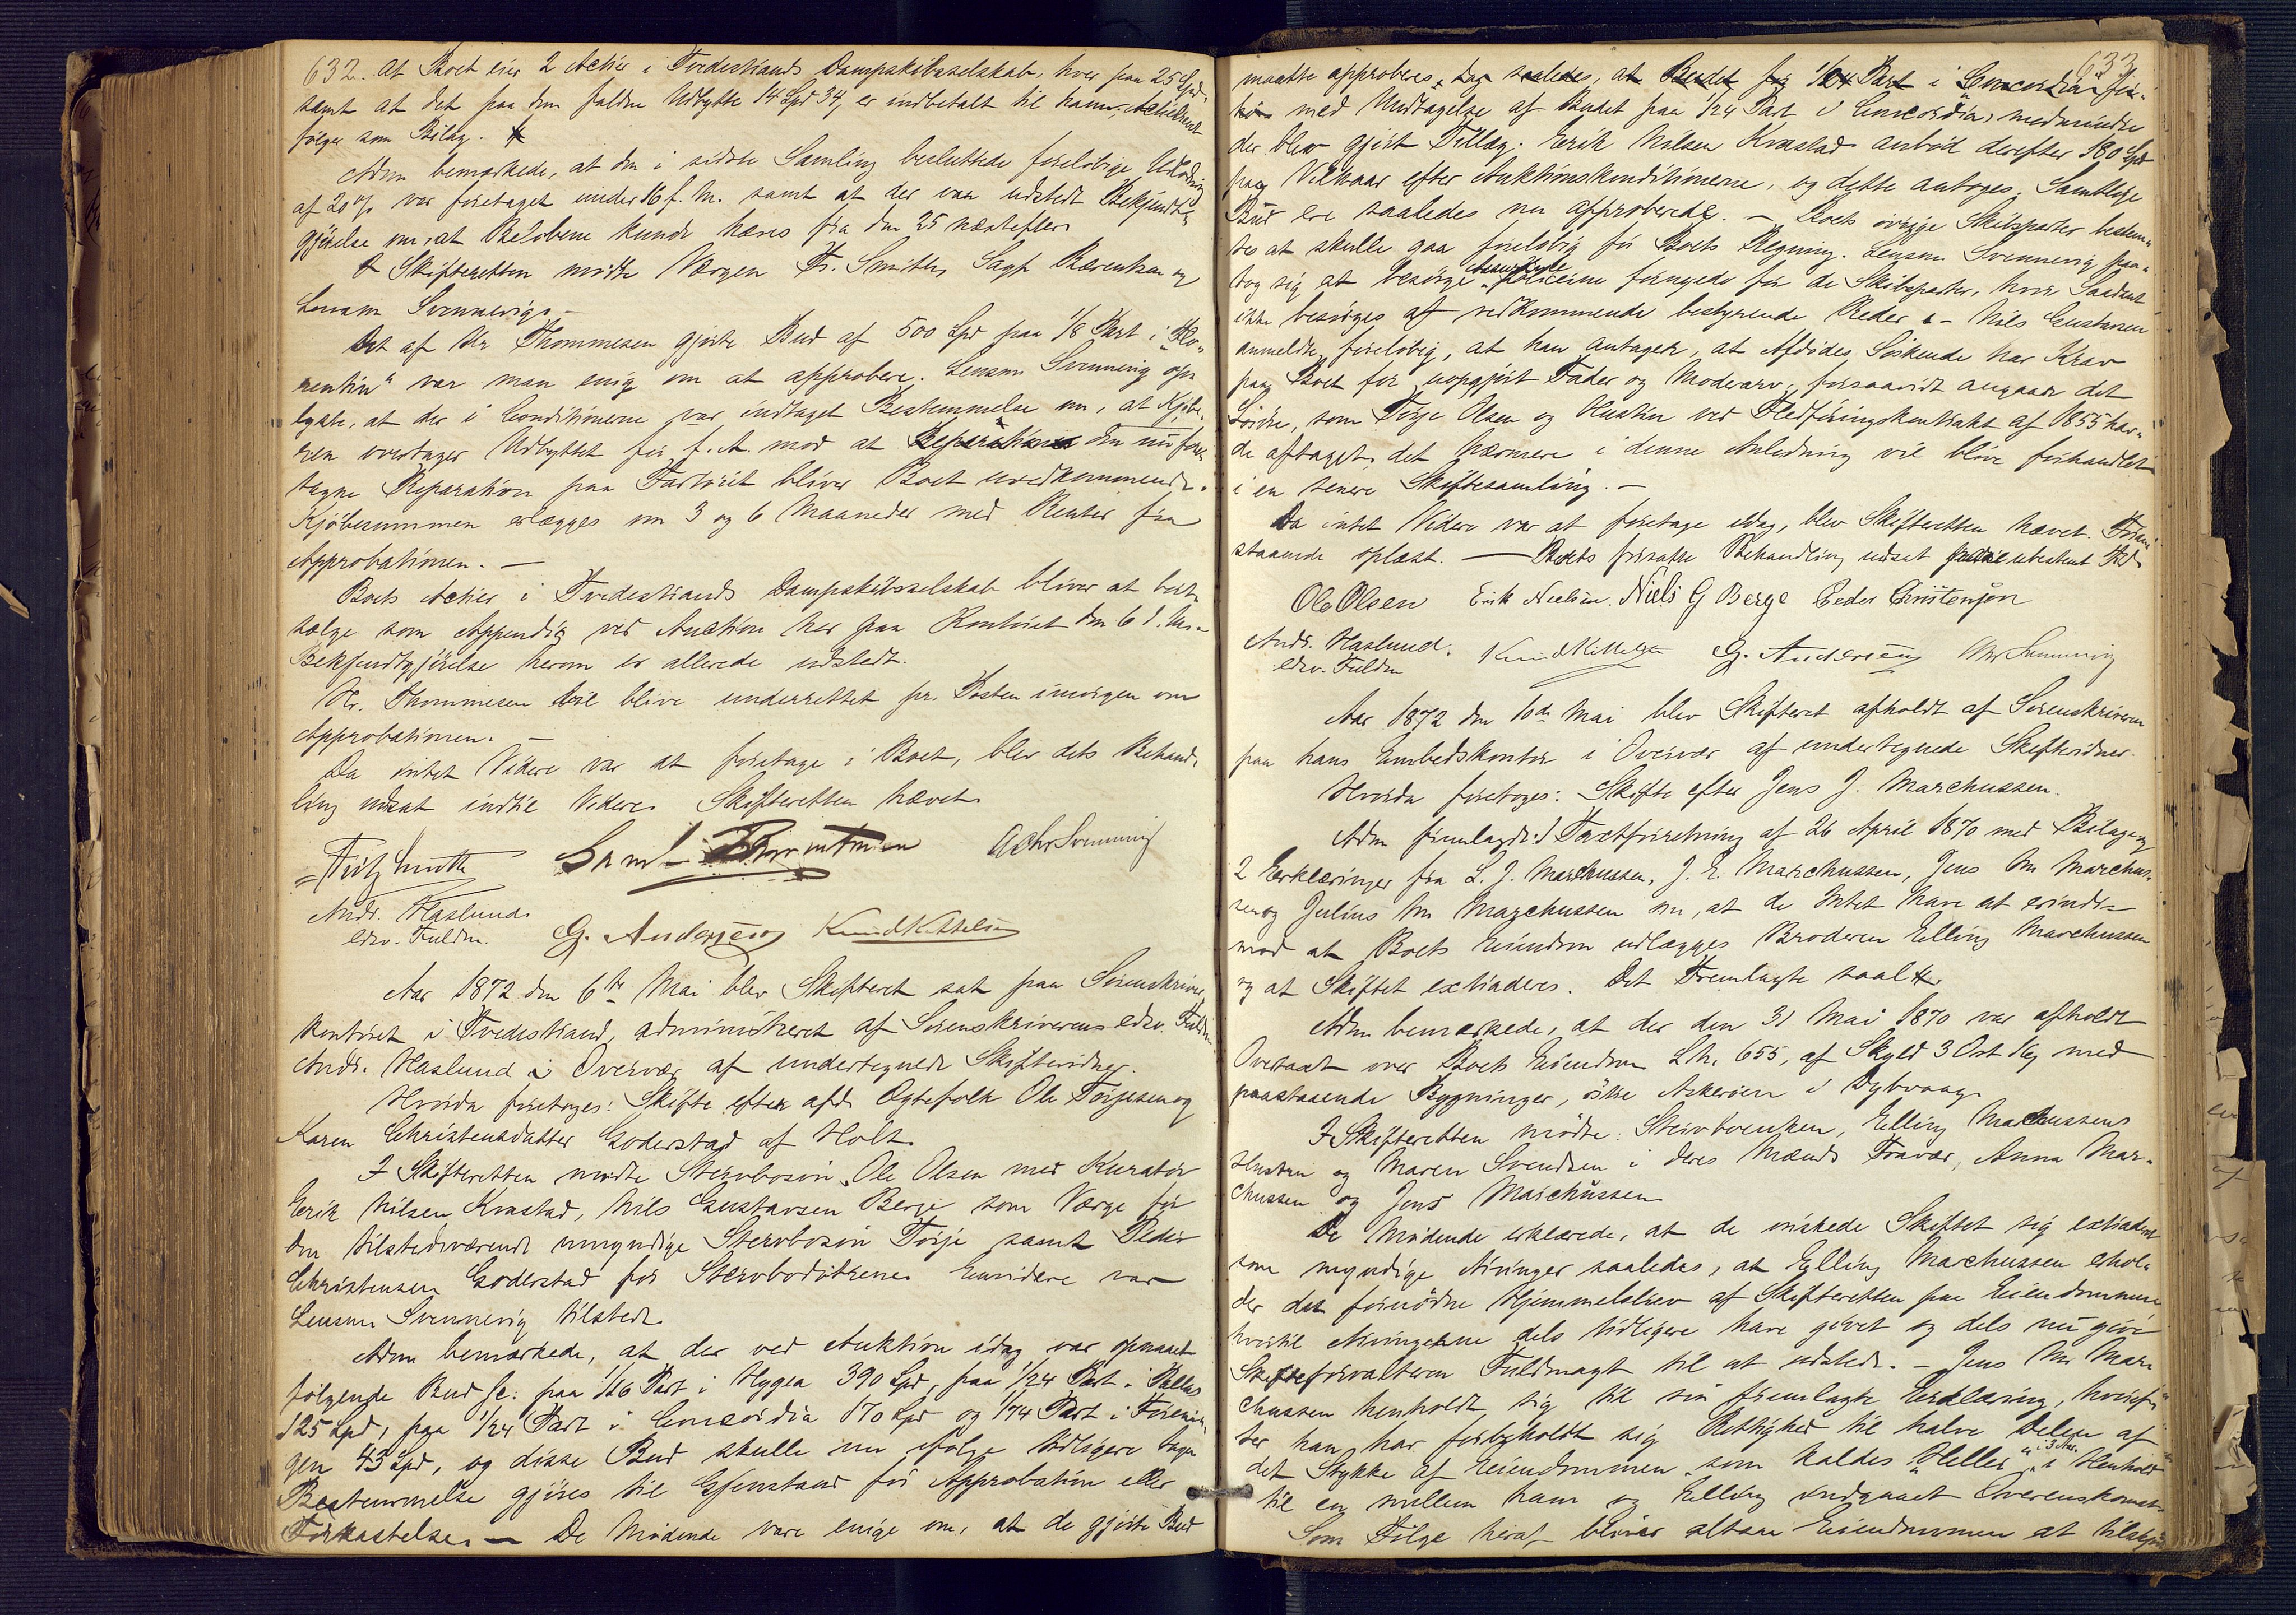 632. At Boet eier 2 Actier i Tvedestrands Dampskibsselskab, hver paa 25 Spd.
samt at det paa dem faldne Udbytte 14 Spd 34, er indbetalt til ham. Actiebrevet
følger som Bilag.
Adm bemærkede, at den i sidste Samling besluttede foreløbige Udlodning
af 20 % var foretaget under 16 f. M. samt at der var udstedt Bekjendt-
gjørelse om, at Beløbene kunde hæves fra den 25 næstefter.
I Skifteretten mødte Værgen Fr. Smith, Sagf. Bærentsen og
Lensm Svennevig. -
Det af Hr Thommesen gjorte Bud af 500 Spd paa 1/8 Part i "Flo-
rentin" var man enig om at approbere. Lensm Svennevig op-
lyste, at der i Conditionerne var indtaget Bestemmelse om, at Kjøbe-
ren overtager Udbyttet for f. A. mod at den nu fore-
tagne Reparation paa Fartøiet bliver Boet uvedkommende.
Kjøbesummen erlægges om 3 og 6 Maaneder med Renter fra
Approbationen. -
Boets Actier i Tvedestrands Dampskibsselskab bliver at bort-
sælge som Appendix ved Auction her paa Kontoret den 6 d. M.
Bekjendtgjørelse herom er allerede udstedt.
Hr. Thommesen vil blive underrettet pr. Posten imorgen om
Approbationen. -
Da intet Videre var at foretage i Boet, blev dets Behand-
ling udsat indtil Videre. Skifteretten hævet.
Fritz Smith Saml. Bærentsen A Chr Svennevig
Andr. Haslund
edsv. Fuldm. G. Andersen Knud Kittelsen
Aar 1872 den 6te Mai blev Skifteret sat paa Sorenskriver-
kontoret i Tvedestrand, administreret af Sorenskriverens edsv. Fuldm
Andr. Haslund i Overvær af undertegnede Skiftevidner.
Hvorda foretoges: Skifte efter afd. Ægtefolk Ole Torjesen og
Karen Christensdatter Goderstad af Holt.
I Skifteretten mødte Stervbosøn Ole Olsen med Kurator
Erik Nilsen Kvastad, Nils Gustavsen Berge som Værge for
den tilstedeværende umyndige Stervbosøn Torje samt Peder
Christensen Goderstad for Stervbodøtrene. Envidere var
Lensm Svennevig tilstede.
Adm bemærkede, at der ved Auktion idag var opnaaet
følgende Bud sc: paa 1/16 Part i Hygea 390 Spd, paa 1/24 Part i Pallas
125 Spd, paa 1/24 Part i Concordia 170 Spd og 1/74 Part i Forenin-
gen 43 Spd, og disse Bud skulle nu ifølge tidligere tagen
Bestemmelse gjøres til Gjenstand for Approbation eller
Forkastelse. - De Mødende vare enige om, at de gjorte Bud
633
maatte approberes, dog saaledes, at Budet for 1/24 Part i Concordia
med Undtagelse af Budet paa 1/24 Part i Concordia, medmindre
der blev gjort Tillæg. Erik Nilsen Kvastad anbød derefter 180 Spd
paa Vilkaar efter Auktionskonditionerne, og dette antoges. Samtlige
Bud ere saaledes nu approberede. - Boets øvrige Skibsparter bestem-
tes at skulle gaa foreløbig for Boets Regning. Lensm Svennevig paa-
tog sig at besørge Assurance policerne fornyede for de Skibsparter, hvor Saadant
ikke besørges af vedkommende bestyrende Reder. - Nils Gustavsen
anmeldte foreløbig, at han antager, at Afdødes Søskende har Krav
paa Boet for uopgjort Fader og Moderarv, forsaavidt angaar det
Løsøre, som Torje Olsen og Hustru ved Fledføringskontrakt af 1855 hav-
de aftaget, det Nærmere i denne Anledning vil blive forhandlet
i en senere Skiftesamling. -
Da intet Videre var at foretage idag, blev Skifteretten hævet. Foran-
staaende oplæst. - Boets fortsatte Behandling udsat ubestemt Tid.
Ole Olsen Erik Nielsen. Niels G Berge Peder Christensen
Andr. Haslund.
edsv. Fuldm Knud Kittelsen G. Andersen A Chr Svennevig
Aar 1872 den 10de Mai blev Skifteret afholdt af Sorenskriveren
paa hans Embedskontor i Overvær af undertegnede Skiftevidner.
Hvorda foretoges: Skifte efter Jens J. Marchussen.
Adm fremlagde: 1 Taxtforretning af 26 April 1870 med Bilag og
2 Erklæringer fra L. J. Marchussen, J. E. Marchussen, Jens M. Marchus-
sen og Julius M. Marchussen om, at de Intet have at erindre
mod at Boets Eiendom udlægges Broderen Elling Marchussen
og at Skiftet extraderes. Det Fremlagte saal.
Adm bemærkede, at der den 31 Mai 1870 var afholdt
Overtaxt over Boets Eiendom L.N. 655, af Skyld 3 Ort 16 med
paastaaende Bygninger, østre Askerøen i Dybvaag.
I Skifteretten mødte: Stervboenken, Elling Marchussens
Hustru og Maren Svendsen i deres Mænds Fravær, Anna Mar-
chussen og Jens Marchussen.
De Mødende erklærede, at de ønskede Skiftet sig extraderet
som myndige Arvinger saaledes, at Elling Marchussen erhol-
der det fornødne Hjemmelsbrev af Skifteretten paa Eiendommen
hvortil Arvingerne dels tidligere have givet og dels nu give
Skifteforvalteren Fuldmagt til at udstede. - Jens M. Mar-
chussen henholdt sig til sin fremlagte Erklæring, hvoref-
ter han har forbeholdt sig Rettighed til halve Delen af
det Stykke af Eiendommen, som kaldes "Heller" i Henhold
til en mellem ham og Elling indgaaet Overenskomst.
Som Følge heraf bliver altsaa Eiendommen at tilskjø